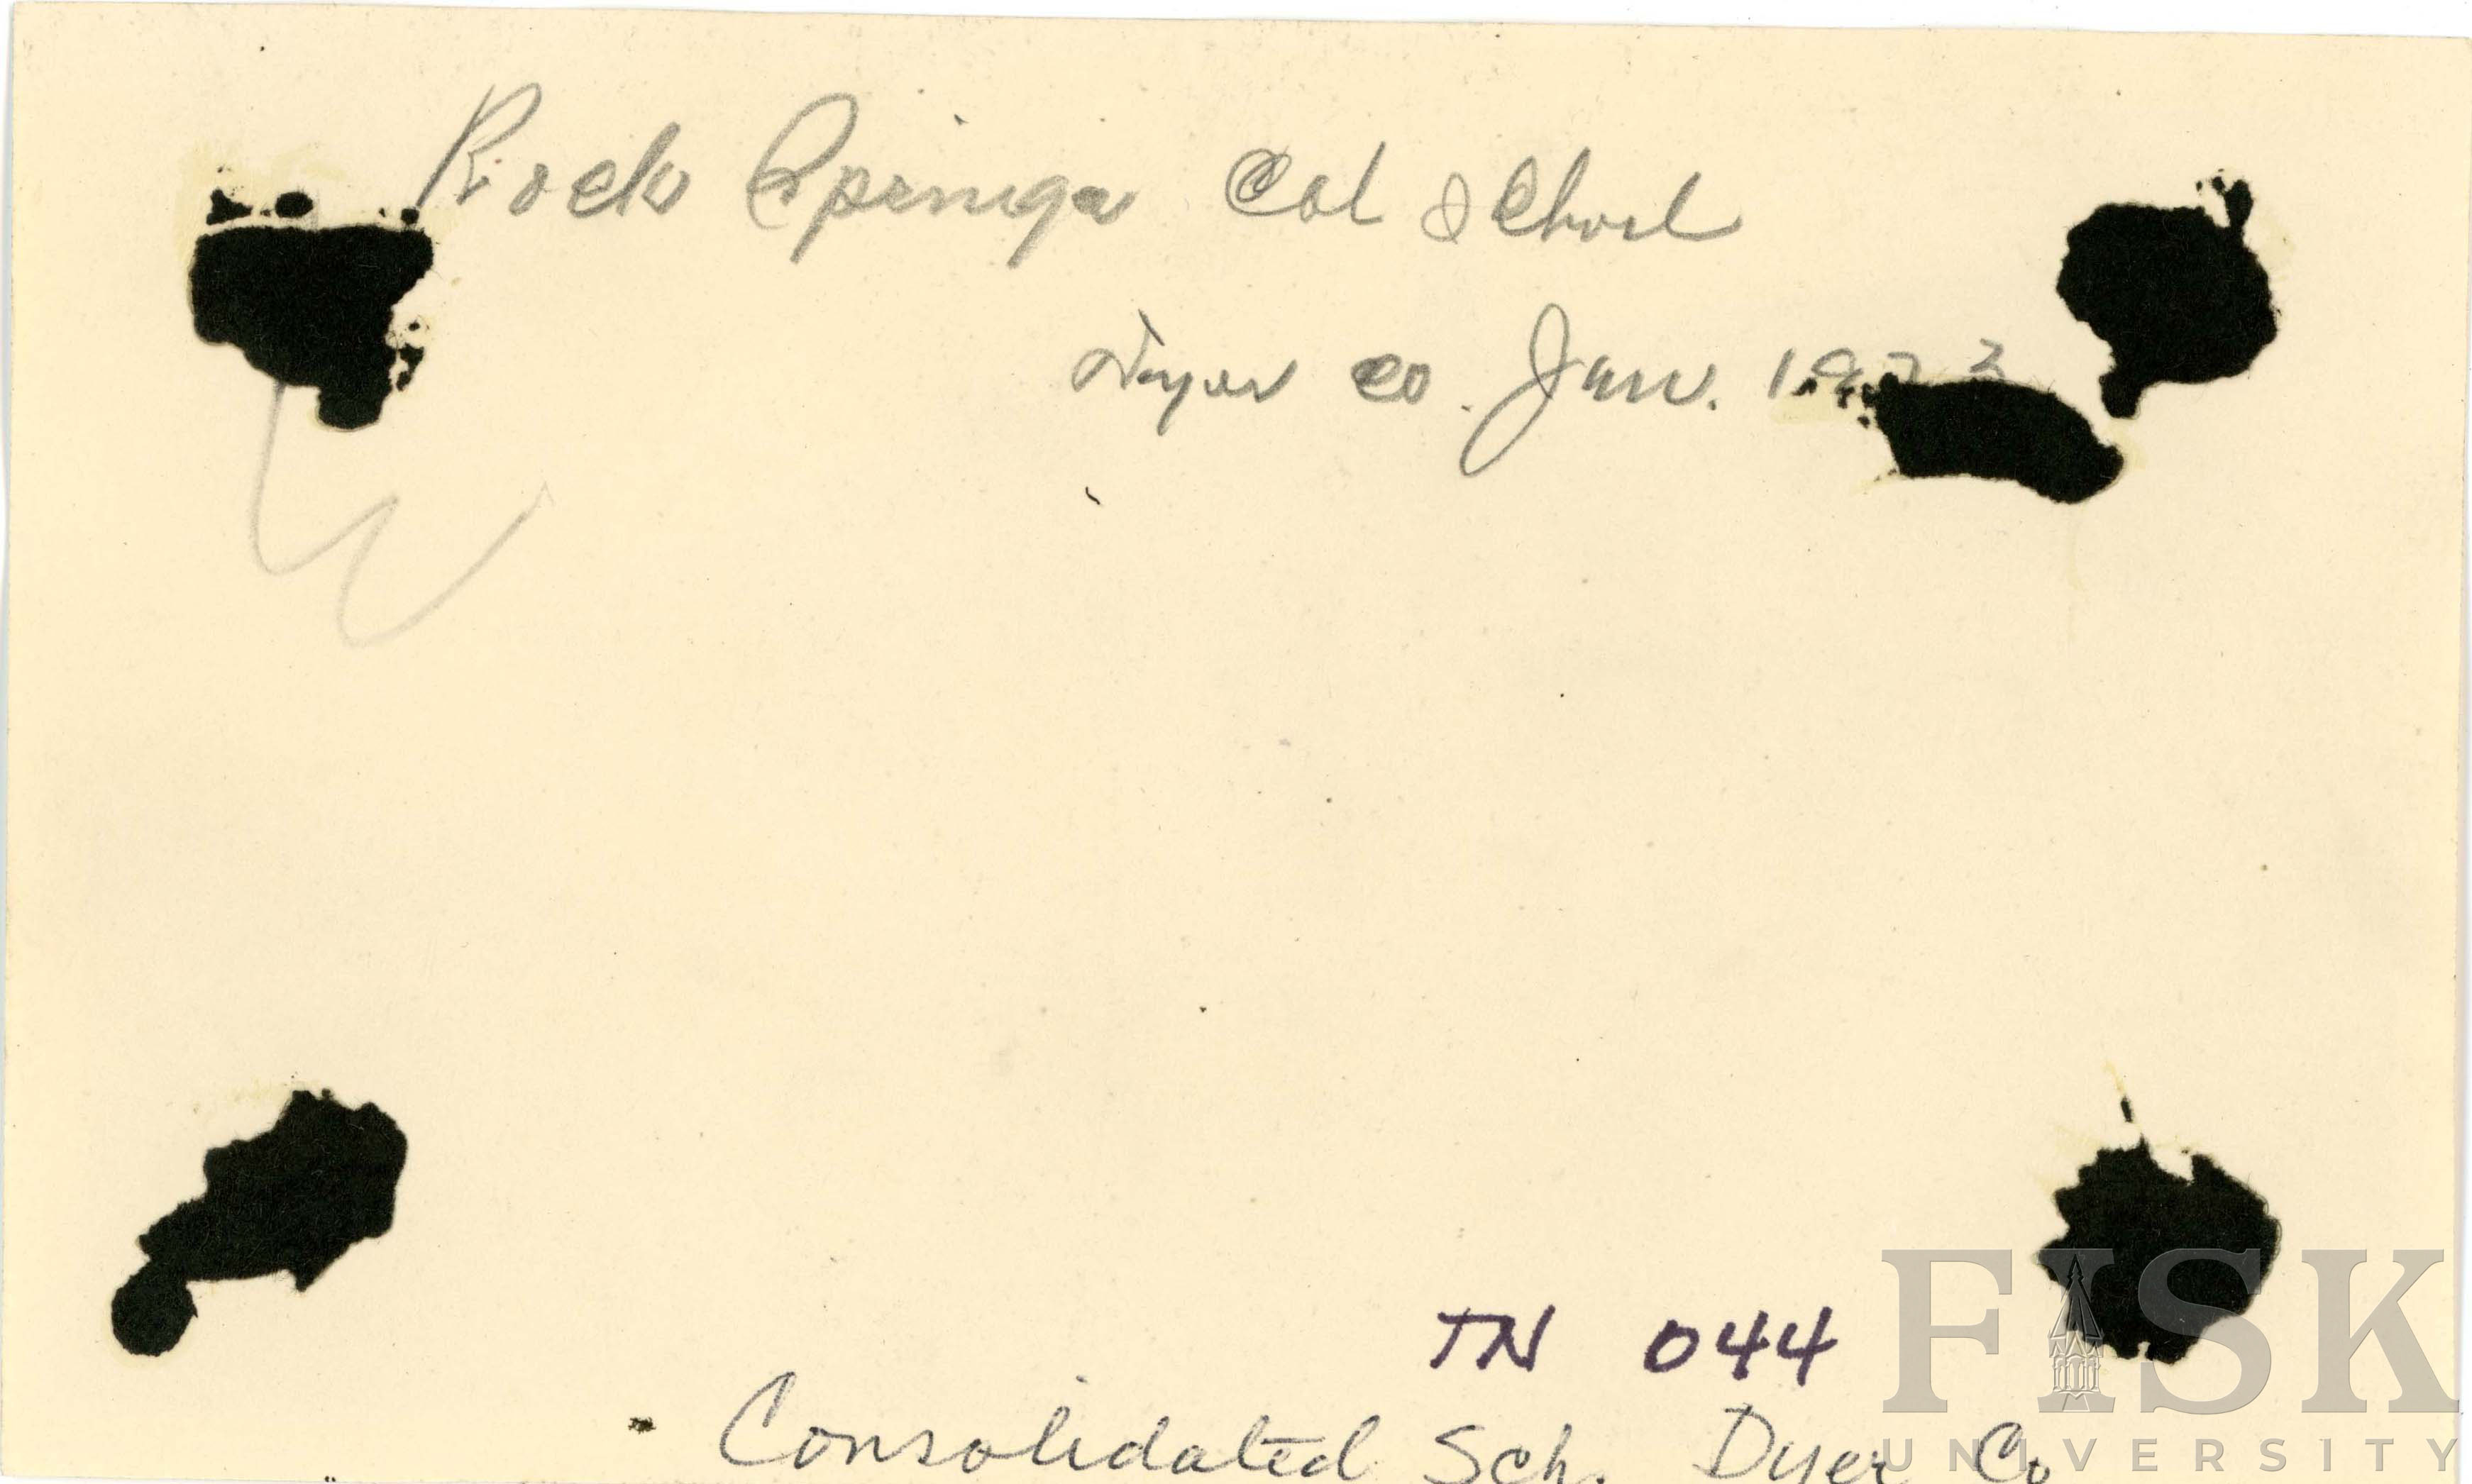 Rock Springs Col School
Dyer Co. Jan. 1923
W
TN 044
Consolidated Sch. Dyer Co
FISK
UNIVERSITY